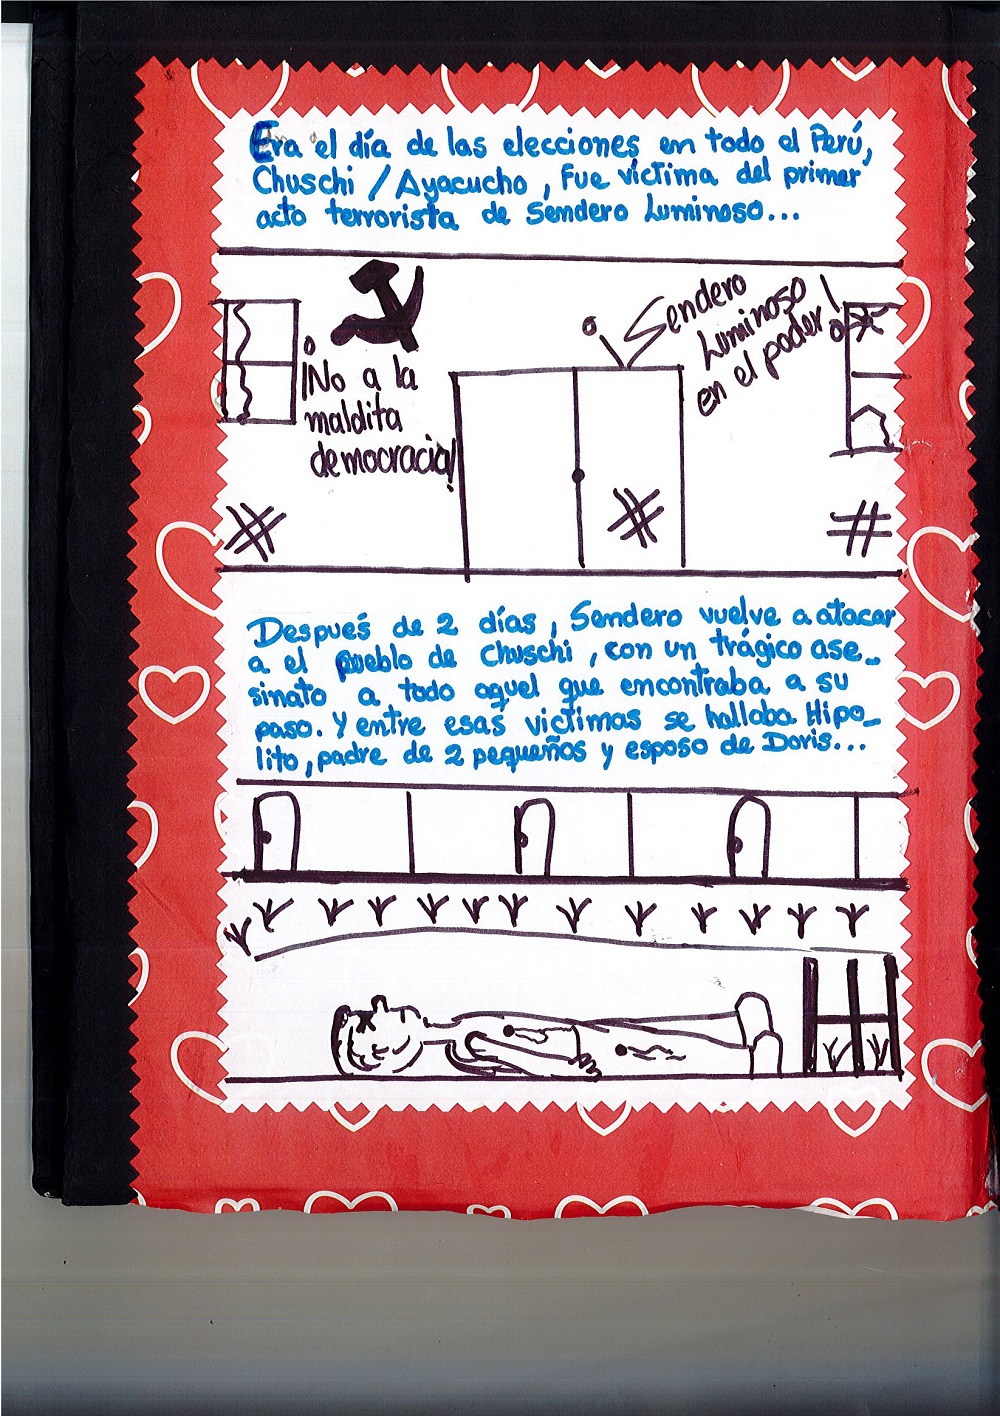 Era el día de las elecciones en todo el Perú,
Chuschi / Ayacucho, Fue víctima del primer
acto terrorista de Sendero Luminoso...
¡No a la
maldita
democracia!
Sendero
Luminoso
en el poder!
Después de 2 días, Sendero vuelve a atacar
a el pueblo de Chuschi, con un trágico ase_
sinato a todo aquel que encontraba a su
paso. Y entre esas víctimas se hallaba Hipo_
lito, padre de 2 pequeños y esposo de Doris...